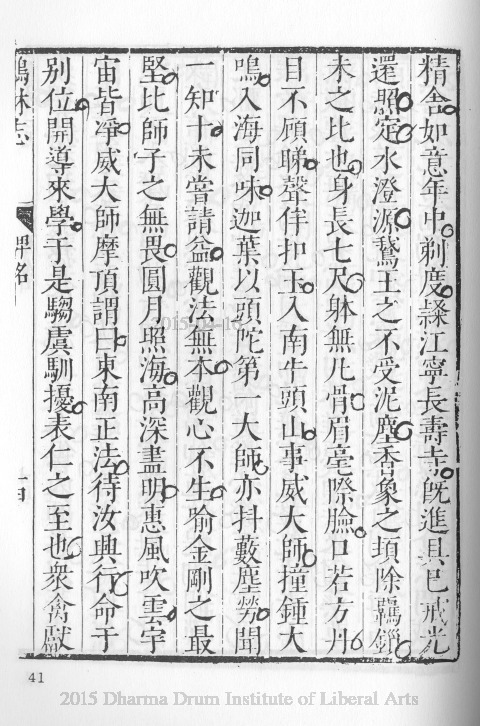 精舍如意年中剃度隸江寧長壽寺既進具已戒光
還照定水澄源鵞王之不受泥塵香象之頓除羈鎖
未之比也身長七尺躰無凡骨眉毫際臉口若方丹
目不顧睇聲侔扣玉入南牛頭山事威大師撞鍾大
鳴入海同味迦葉以頭陀第一大師亦抖藪塵勞聞
一知十未嘗請益觀法無本觀心不生喻金剛之最
堅比師子之無畏圓月照海高深盡明惠風吹雲宇
宙皆凈威大師摩頂謂曰東南正法待汝興行命于
别位開導來學于是騶虞馴擾表仁之至也衆禽獻
林志 碑銘 十四
2015-04-10
41
2015 Dharma Drum Institute of Liberal Arts